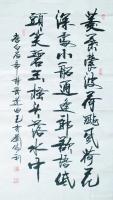 菱葉縈波荷颭風荷花
深處小船通逢郎欲語低
頭笑碧玉搔頭落水中
唐白居易